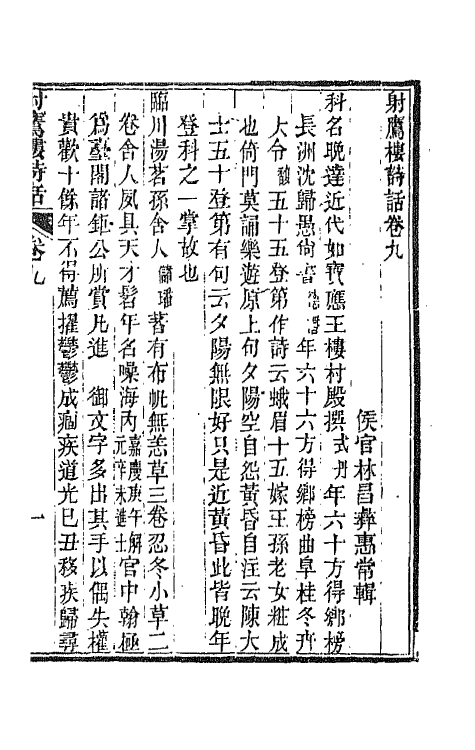 射鷹樓詩話卷九
侯官林昌彝惠常輯
科名晚達近代如寶應王樓村殿撰式丹年六十方得鄉榜
長洲沈歸愚尚書德潛年六十六方得鄉榜曲阜桂冬卉
大令馥五十五登第作詩云蛾眉十五嫁王孫老女粧成
也倚門莫誦樂遊原上句夕陽空自怨黃昏自注云陳大
士五十登第有句云夕陽無限好只是近黃昏此皆晚年
登科之一掌故也
臨川湯茗孫舍人儲璠著有布帆無恙草三卷忍冬小草二
卷舍人夙具天才髫年名噪海內嘉慶庚午解元辛未進士官中翰極
爲臺閣諸鉅公所賞凡進 御文字多出其手以偶失權
貴歡十餘年不得薦擢鬱鬱成痼疾道光己丑移疾歸尋
射鷹樓詩話 卷九
一